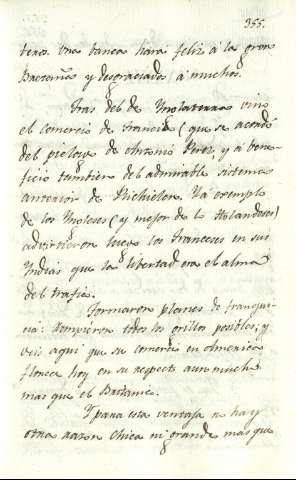 355.
teros. Una banca hara feliz á la gran
y desgraciados á muchos.
Tras del de Ynglaterra vino
el comercio de Francia (que se acordó
del pielago de Antonio Perez, y á bene-
ficio tambien del admirable sistema
anterior de Richelieu. Ya exemplo
de los Yngleses (y mejor de los Holandeses)
advirtieron luego los Franceses en sus
Yndias que la libertad era el alma
del trafico.
Formaron planes de franqui-
cia: rompieron todos los grillos posibles; y
veis aqui que su comercio en America
florece hoy en su respecto aun mucho
mas que el Britanico.
Y para esta ventaja no hay
otra razon chica ni grande mas que